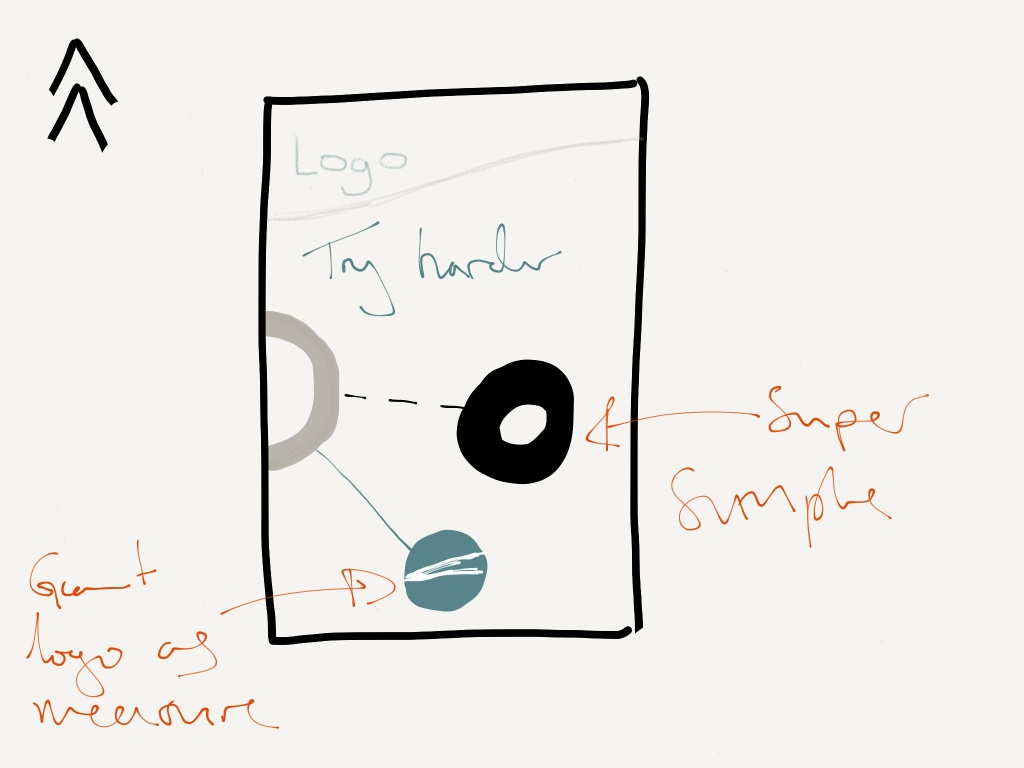 Logo
Try harder
Super
Simple
logo as
measure